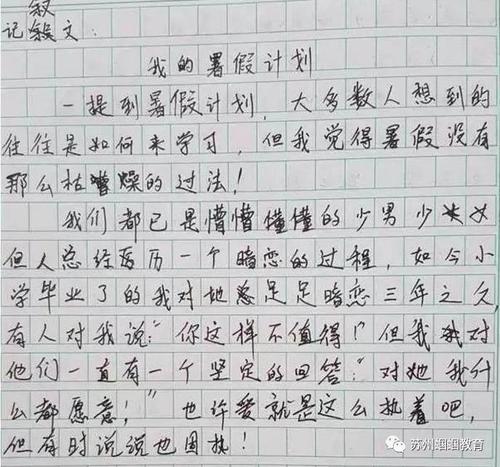 叙
记叙文:
我的暑假计划
一提到暑假计划,大多数人想到的
往往是如何来学习,但我觉得暑假没有
那么枯噪燥的过法!
我们都已是懵懵懂懂的少男少女
但人总经历一个暗恋的过程,如今小
学毕业了的我对她足足暗恋三年之久,
有人对我说:“你这样不值得!”但我对
他们一直有一个坚定的回答:“对她我什
么都愿意!”也许爱就是这么执着吧,
但有时说说也固执!
苏州蝈蝈教育